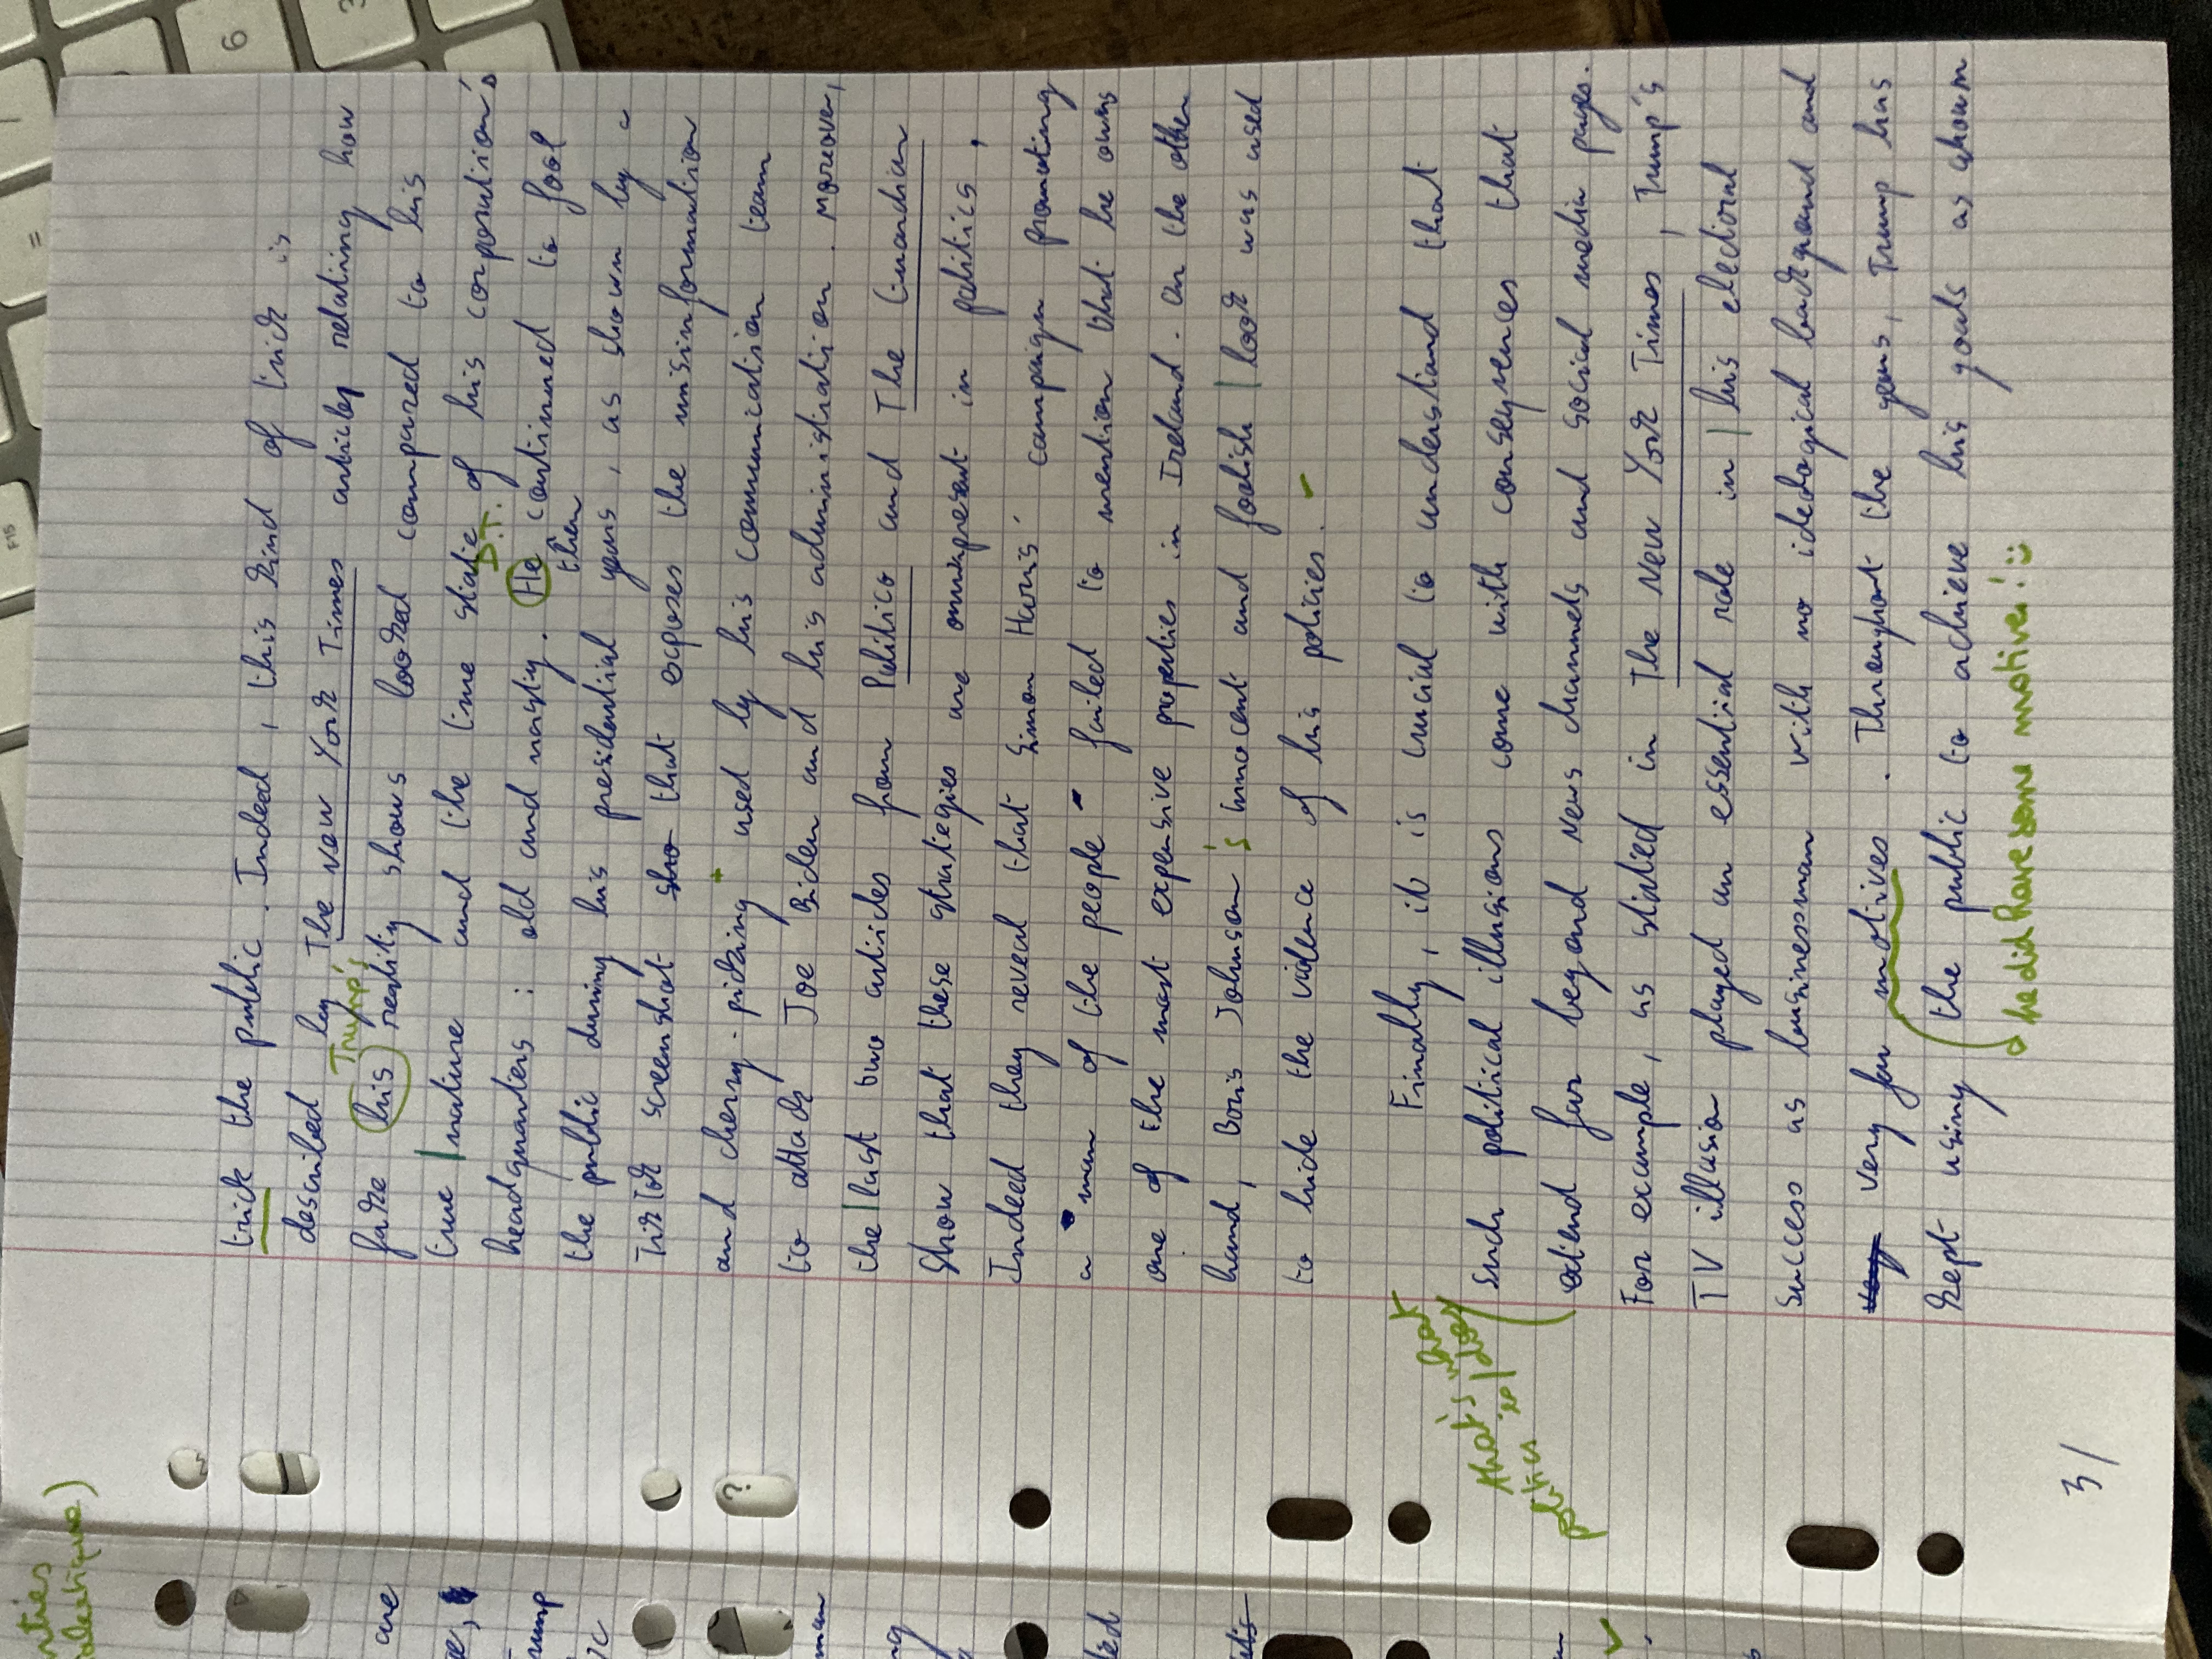 trick the public. Indeed, this kind of trick is
described by The New York Times article relating how
Trump's
fake his reality shows looked compared to his
true nature and the true state of his corporation's
D.T.
headquarters : old and nasty. He continued to fool
then
the public during his presidential years, as shown by a
TikTok screenshot sho that exposes the misinformation
and cherry-picking used by his communication team
to attack Joe Biden and his administration. Moreover,
the last two articles from Politico and The Guardian
show that these strategies are omnipresent in politics,
Indeed they reveal that Simon Harris' campaign promoting
a man of the people - failed to mention that he owns
one of the most expensive properties in Ireland. On the other
hand, Boris Johnson's innocent and foolish look was used
to hide the violence of his policies.
Finally, it is crucial to understand that
Such political illusions come with consequences that
extend far beyond news channels and social media pages.
For example, as stated in The New York Times, Trump's
TV illusion played an essential role in his electoral
success as businessman with no ideological background and
very few motives. Throughout the years, Trump has
kept using the public to achieve his goals as shown
he did have some motive! :)
that's what
politics
3/
are
Trump